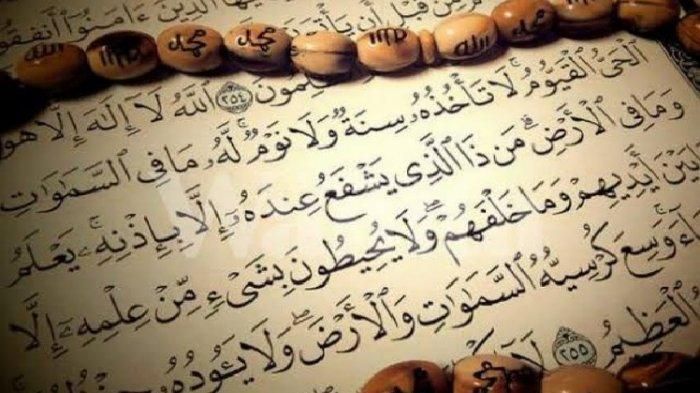 ٱلَّذِينَ ءَامَنُوٓا۟ أَنفِقُوا۟
مِّن قَبْلِ أَن
الله محمد محمد الله
ٱللَّهُ لَآ إِلَٰهَ إِلَّا هُوَ
ٱلْحَىُّ ٱلْقَيُّومُ ۚ لَا تَأْخُذُهُۥ سِنَةٌ وَلَا نَوْمٌ ۚ لَّهُۥ مَا فِى ٱلسَّمَٰوَٰتِ
وَمَا فِى ٱلْأَرْضِ ۗ مَن ذَا ٱلَّذِى يَشْفَعُ عِندَهُۥٓ إِلَّا بِإِذْنِهِۦ ۚ يَعْلَمُ
بَيْنَ أَيْدِيهِمْ وَمَا خَلْفَهُمْ ۖ وَلَا يُحِيطُونَ بِشَىْءٍ مِّنْ عِلْمِهِۦٓ إِلَّا
وَسِعَ كُرْسِيُّهُ ٱلسَّمَٰوَٰتِ وَٱلْأَرْضَ ۖ وَلَا يَـُٔودُهُۥ
ٱلْعَظِيمُ ٢٥٥ لَآ